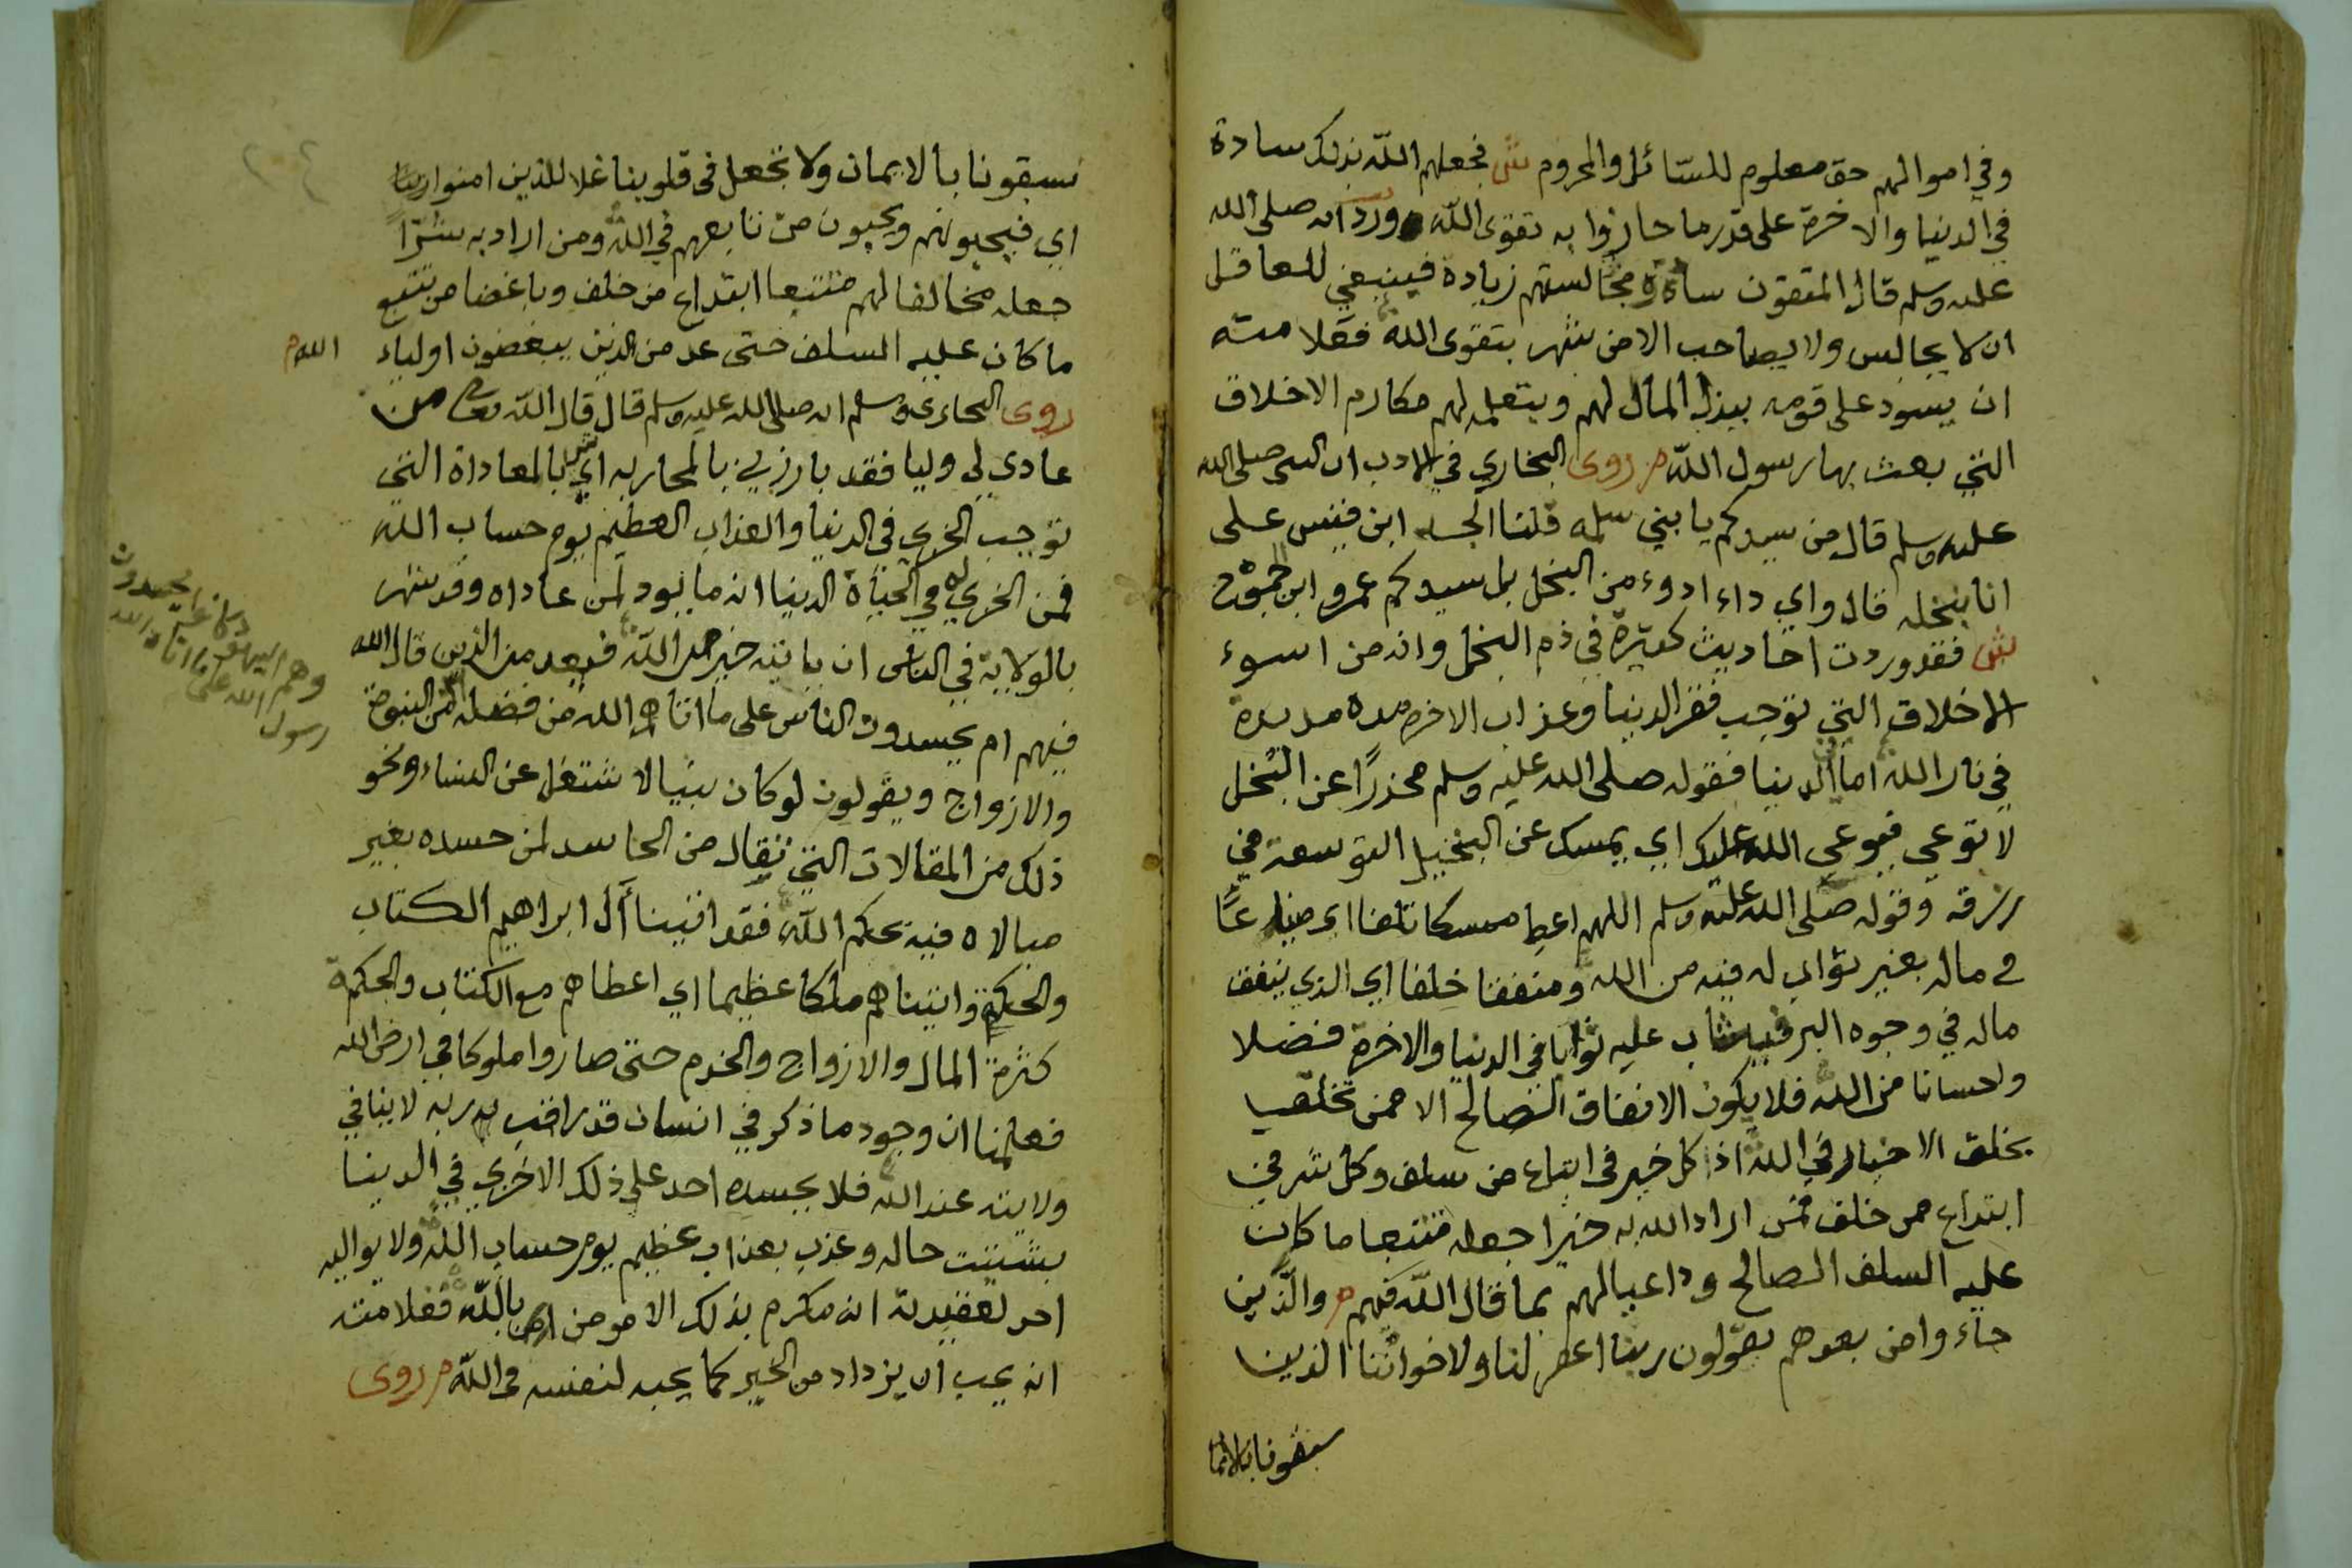 وفي اموالهم حق معلوم للسّائل والمحروم ش فجعلهم اللّه بذلك سادة
في الدنيا والاخرة على قدر ما حازوا به تقوى اللّه ورد انه صلى الله
عليه وسلم قال المتقون سادة ومجالستهم زيادة فينبغي للعاقل
ان لا يجالس ولا يصاحب الا من شهر بتقوى الله فعلامته
ان يسود على قومه ببذل المال لهم وبتعلمه لهم مكارم الاخلاق
التي بعث بها رسول اللّه م روى البخاري في الادب ان النبي صلى الله
عليه وسلم قال من سيدكم يا بني سلمه قلنا الجد ابن قيس على
انا نبخله قال واي داء ادوء من البخل بل سيدكم عمرو ابن الجموح
ش فقد وردت احاديث كثيرة في ذم البخل وانه من اسوء
الاخلاق التي توجب فقر الدنيا وعذاب الاخره مده مديدة
في نار الله اما الدنيا فقوله صلى الله عليه وسلم محذرًا عن البُخل
لا توعي فيوعي الله عليك اي يمسك عن البخيل التوسعة في
رزقه وقوله صلى الله عليه وسلم اللهم اعط ممسكا تلفا اي
في ماله بغير ثواب له فيه من الله ومنفقا خلفا اي الذي ينفق
ماله في وجوه البر فيثاب عليه ثوابا في الدنيا والاخرة فضلا
واحسانا من الله فلا يكون الانفاق الصالح الا ممن تخلق
بخلق الاخيار في الله اذ كل خير في اتباع من سلف وكل شر في
ابتداع من خلف فمن اراد الله به خيرا جعله متتبعا ما كان
عليه السلف الصالح وداعيا لهم بما قال اللّه فيهم م والّذين
جاءوا من بعدهم يقولون ربنا اغفر لنا ولاخواننا الذين
سبقونا بالايما
سبقونا بالايمان ولا تجعل في قلوبنا غلا للذين امنوا ربنا
اي فيحبونهم ويحبون من تابعهم في الله ومن اراد به شرّاً
جعله مخالفا لهم متتبعا ابتداع من خلف وباغضا من تتبع
ما كان عليه السلف حتى عد من الذين يبغضون اولياء الله م
روى البخاري وسلم انه صلى الله عليه وسلم قال قال اللّه تعالى من
عادى لي وليا فقد بارزني بالمحاربه اي بالمعاداة التي
توجب الخزي في الدنيا والعذاب العظيم يوم حساب الله
فمن الخزي له في الحياة الدنيا انه ما يود لمن عاداه وقد شهر
بالولاية في الناس ان ياتيه خير من اللّه فيعد من الذين قال الله
فيهم ام يحسدون الناس على ما اتاهم الله من فضله من النبوة
والازواج ويقولون لو كان نبيا لاشتغل عن النساء ونحو
ذلك من المقالات التي تقال من الحاسد لمن حسده بغير
مبالاه فيه بحكم اللّه فقد اتينا آل ابراهيم الكتاب
والحكمة واتيناهم ملكا عظيما اي اعطاهم مع الكتاب والحكمة
كثرة المال والازواج والخدم حتى صاروا ملوكا في ارض الله
فعلمنا ان وجود ما ذكر في انسان قد راقب به ربه لا ينافي
ولايته عند الله فلا يحسده احد على ذلك الا خزي في الدنيا
بتشتيت حاله وعذب بعذاب عظيم يوم حساب اللّه ولا يواليه
احد لعقيدته انه مكرم بذلك الا مومن امن باللّه فعلامته
انه يحب ان يزداد من الخير كما يحبه لنفسه في اللّه م روى
وهم اليهود يحسدون
رسول الله على ما اتاه الله